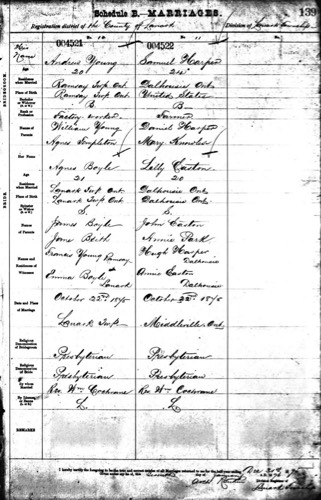 Schedule B.—MARRIAGES. 139
Registration district of the County of Lanark Division of Lanark Township
004521 004522
His Name
Andrew Young Samuel Harper
Age
20 24
Residence when Married
Ramsay Twp Ont Dalhousie Ont
Place of Birth
Ramsay Twp Ont United States
B B
Factory worker Farmer
Names of Parents
William Young Daniel Harper
Agnes Templeton Mary Knowles
Her Name
Agnes Boyle Lilly Caston
Age
21 20
Residence when Married
Lanark Twp Ont Dalhousie Ont
Place of Birth
Lanark Twp Ont Dalhousie Ont
S. S.
Names of Parents
James Boyle John Caston
Jane Bdith Annie Park
Names and Residences of Witnesses
Francis Young Ramsay Hugh Harper
Dalhousie
Emma Boyle Annie Caston
Lanark Dalhousie
Date and Place of Marriage
October 22nd 1875 October 1875
Lanark Twp Middleville Ont
Religious Denomination of Bridegroom
Presbyterian Presbyterian
Religious Denomination of Bride
Presbyterian Presbyterian
By whom Married
Rev Wm Cochrane Rev Wm Cochrane
L L
REMARKS
I hereby certify the foregoing to be the true and correct